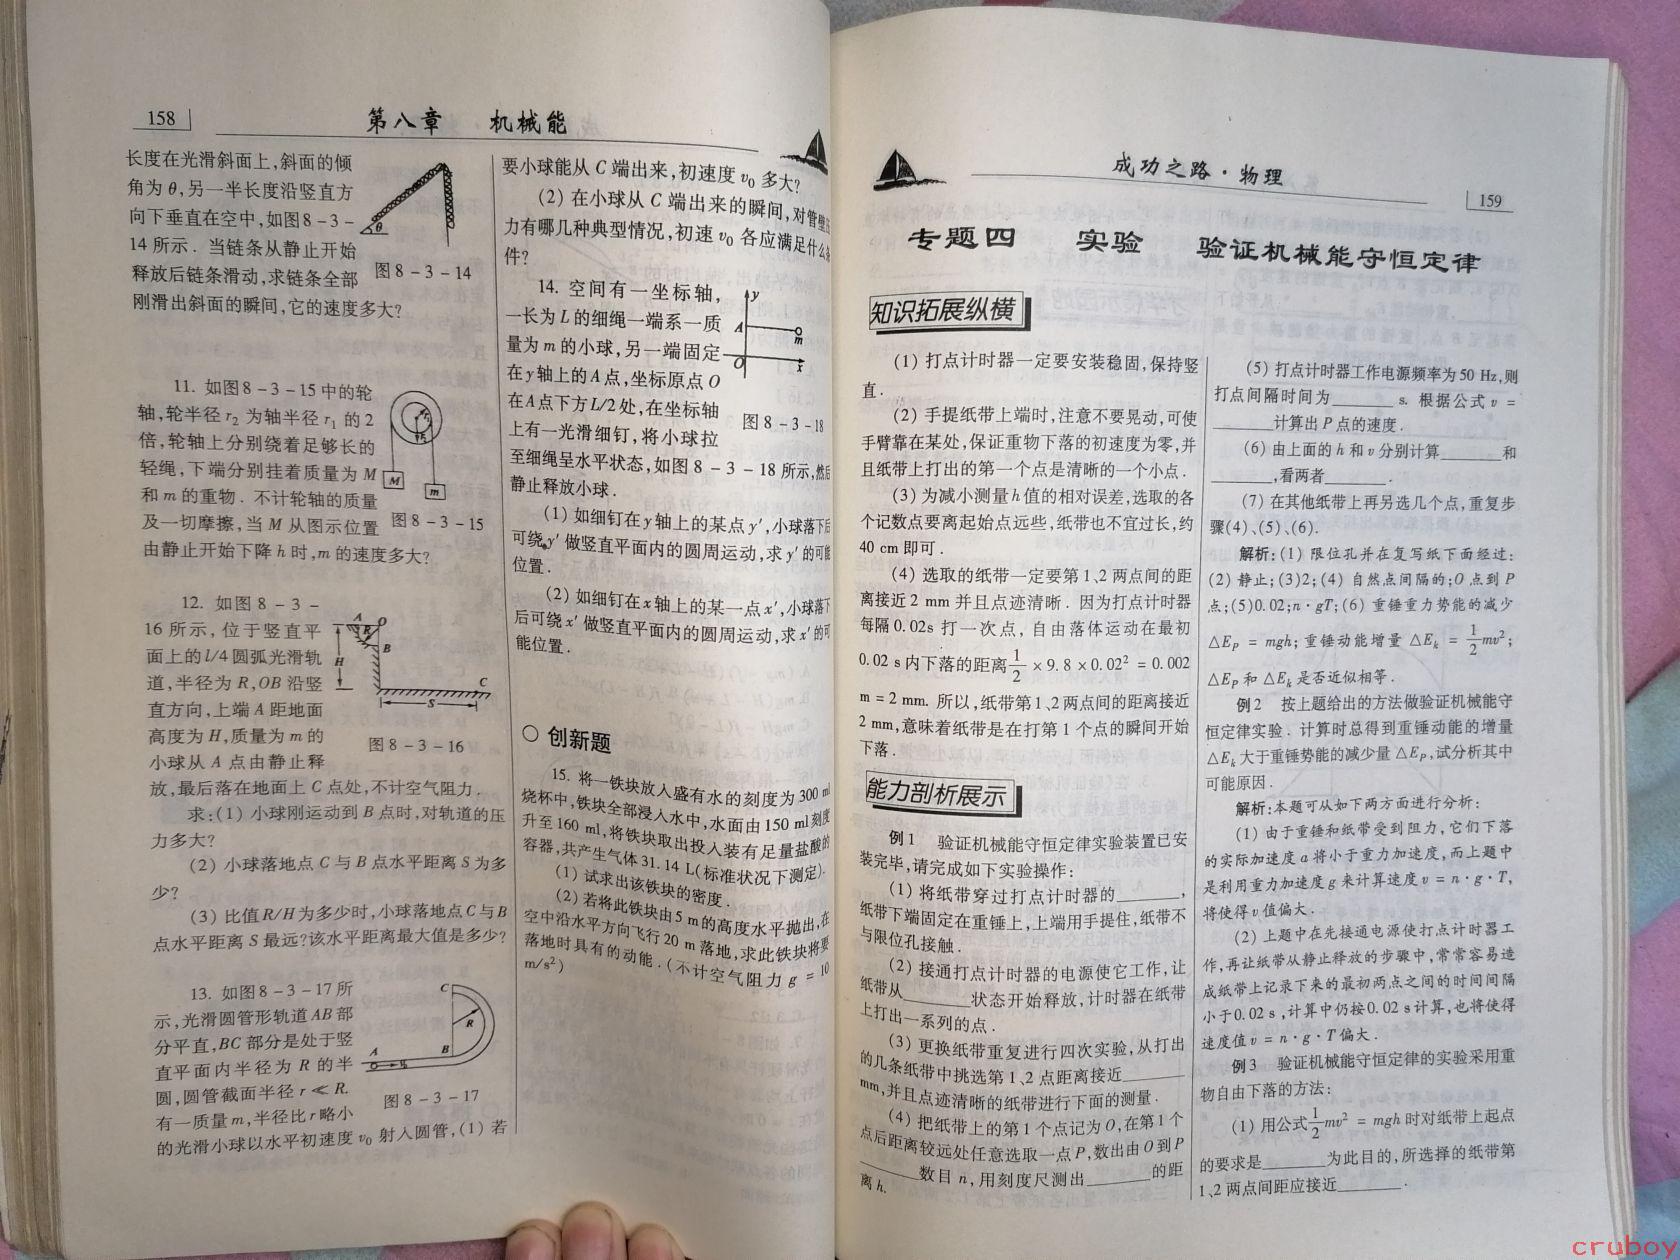 158
第八章 机械能
长度在光滑斜面上,斜面的倾
角为θ,另一半长度沿竖直方
向下垂直在空中,如图8-3-
14所示.当链条从静止开始
释放后链条滑动,求链条全部
刚滑出斜面的瞬间,它的速度多大?
θ
图8-3-14
11. 如图8-3-15中的轮
轴,轮半径r₂为轴半径r₁的2
倍,轮轴上分别绕着足够长的
轻绳,下端分别挂着质量为M
和m的重物.不计轮轴的质量
及一切摩擦,当M从图示位置
由静止开始下降h时,m的速度多大?
M
m
图8-3-15
12. 如图8-3-
16所示,位于竖直平
面上的l/4圆弧光滑轨
道,半径为R,OB沿竖
直方向,上端A距地面
高度为H,质量为m的
小球从A点由静止释
放,最后落在地面上C点处,不计空气阻力.
A O
R
B
H
C
S
图8-3-16
求:(1)小球刚运动到B点时,对轨道的压
力多大?
(2)小球落地点C与B点水平距离S为多
少?
(3)比值R/H为多少时,小球落地点C与B
点水平距离S最远?该水平距离最大值是多少?
13. 如图8-3-17所
示,光滑圆管形轨道AB部
分平直,BC部分是处于竖
直平面内半径为R的半
圆,圆管截面半径r≪R.
有一质量m,半径比r略小
的光滑小球以水平初速度v₀射入圆管,(1)若
C
R
A
B
v₀
图8-3-17
要小球能从C端出来,初速度v₀多大?
(2)在小球从C端出来的瞬间,对管壁压
力有哪几种典型情况,初速v₀各应满足什么条
件?
14. 空间有一坐标轴,
一长为L的细绳一端系一质
量为m的小球,另一端固定
在y轴上的A点,坐标原点O
在A点下方L/2处,在坐标轴
上有一光滑细钉,将小球拉
至细绳呈水平状态,如图8-3-18所示,然后
静止释放小球.
y
A
m
O
x
图8-3-18
(1)如细钉在y轴上的某点y′,小球落下后
可绕y′做竖直平面内的圆周运动,求y′的可能
位置.
(2)如细钉在x轴上的某一点x′,小球落下
后可绕x′做竖直平面内的圆周运动,求x′的可
能位置.
○ 创新题
15. 将一铁块放入盛有水的刻度为300 ml
烧杯中,铁块全部浸入水中,水面由150 ml刻度
升至160 ml,将铁块取出投入装有足量盐酸的
容器,共产生气体31.14 L(标准状况下测定).
(1)试求出该铁块的密度.
(2)若将此铁块由5 m的高度水平抛出,在
空中沿水平方向飞行20 m落地,求此铁块将要
落地时具有的动能.(不计空气阻力 g = 10
m/s²)
成功之路·物理
159
专题四 实验 验证机械能守恒定律
知识拓展纵横
(1)打点计时器一定要安装稳固,保持竖
直.
(2)手提纸带上端时,注意不要晃动,可使
手臂靠在某处,保证重物下落的初速度为零,并
且纸带上打出的第一个点是清晰的一个小点.
(3)为减小测量h值的相对误差,选取的各
个记数点要离起始点远些,纸带也不宜过长,约
40 cm即可.
(4)选取的纸带一定要第1、2两点间的距
离接近2 mm并且点迹清晰.因为打点计时器
每隔0.02s打一次点,自由落体运动在最初
0.02 s内下落的距离1/2×9.8×0.02² = 0.002
m = 2 mm. 所以,纸带第1、2两点间的距离接近
2 mm,意味着纸带是在打第1个点的瞬间开始
下落.
能力剖析展示
例1 验证机械能守恒定律实验装置已安
装完毕,请完成如下实验操作:
(1)将纸带穿过打点计时器的______,
纸带下端固定在重锤上,上端用手提住,纸带不
与限位孔接触.
(2)接通打点计时器的电源使它工作,让
纸带从______状态开始释放,计时器在纸带
上打出一系列的点.
(3)更换纸带重复进行四次实验,从打出
的几条纸带中挑选第1、2点距离接近______
mm,并且点迹清晰的纸带进行下面的测量.
(4)把纸带上的第1个点记为O,在第1个
点后距离较远处任意选取一点P,数出由O到P
______数目n,用刻度尺测出______的距
离h.
(5)打点计时器工作电源频率为50 Hz,则
打点间隔时间为______ s. 根据公式v =
______计算出P点的速度.
(6)由上面的h和v分别计算______和
______,看两者______.
(7)在其他纸带上再另选几个点,重复步
骤(4)、(5)、(6).
解析:(1)限位孔并在复写纸下面经过;
(2)静止;(3)2;(4)自然点间隔的;O点到P
点;(5)0.02;n·gT;(6)重锤重力势能的减少
△E_P = mgh;重锤动能增量△E_k = 1/2mv²;
△E_P和△E_k是否近似相等.
例2 按上题给出的方法做验证机械能守
恒定律实验.计算时总得到重锤动能的增量
△E_k大于重锤势能的减少量△E_P,试分析其中
可能原因.
解析:本题可从如下两方面进行分析:
(1)由于重锤和纸带受到阻力,它们下落
的实际加速度a将小于重力加速度,而上题中
是利用重力加速度g来计算速度v = n·g·T,
将使得v值偏大.
(2)上题中在先接通电源使打点计时器工
作,再让纸带从静止释放的步骤中,常常容易造
成纸带上记录下来的最初两点之间的时间间隔
小于0.02 s,计算中仍按0.02 s计算,也将使得
速度值v = n·g·T偏大.
例3 验证机械能守恒定律的实验采用重
物自由下落的方法:
(1)用公式1/2mv² = mgh时对纸带上起点
的要求是______为此目的,所选择的纸带第
1、2两点间距应接近______.
cruboy